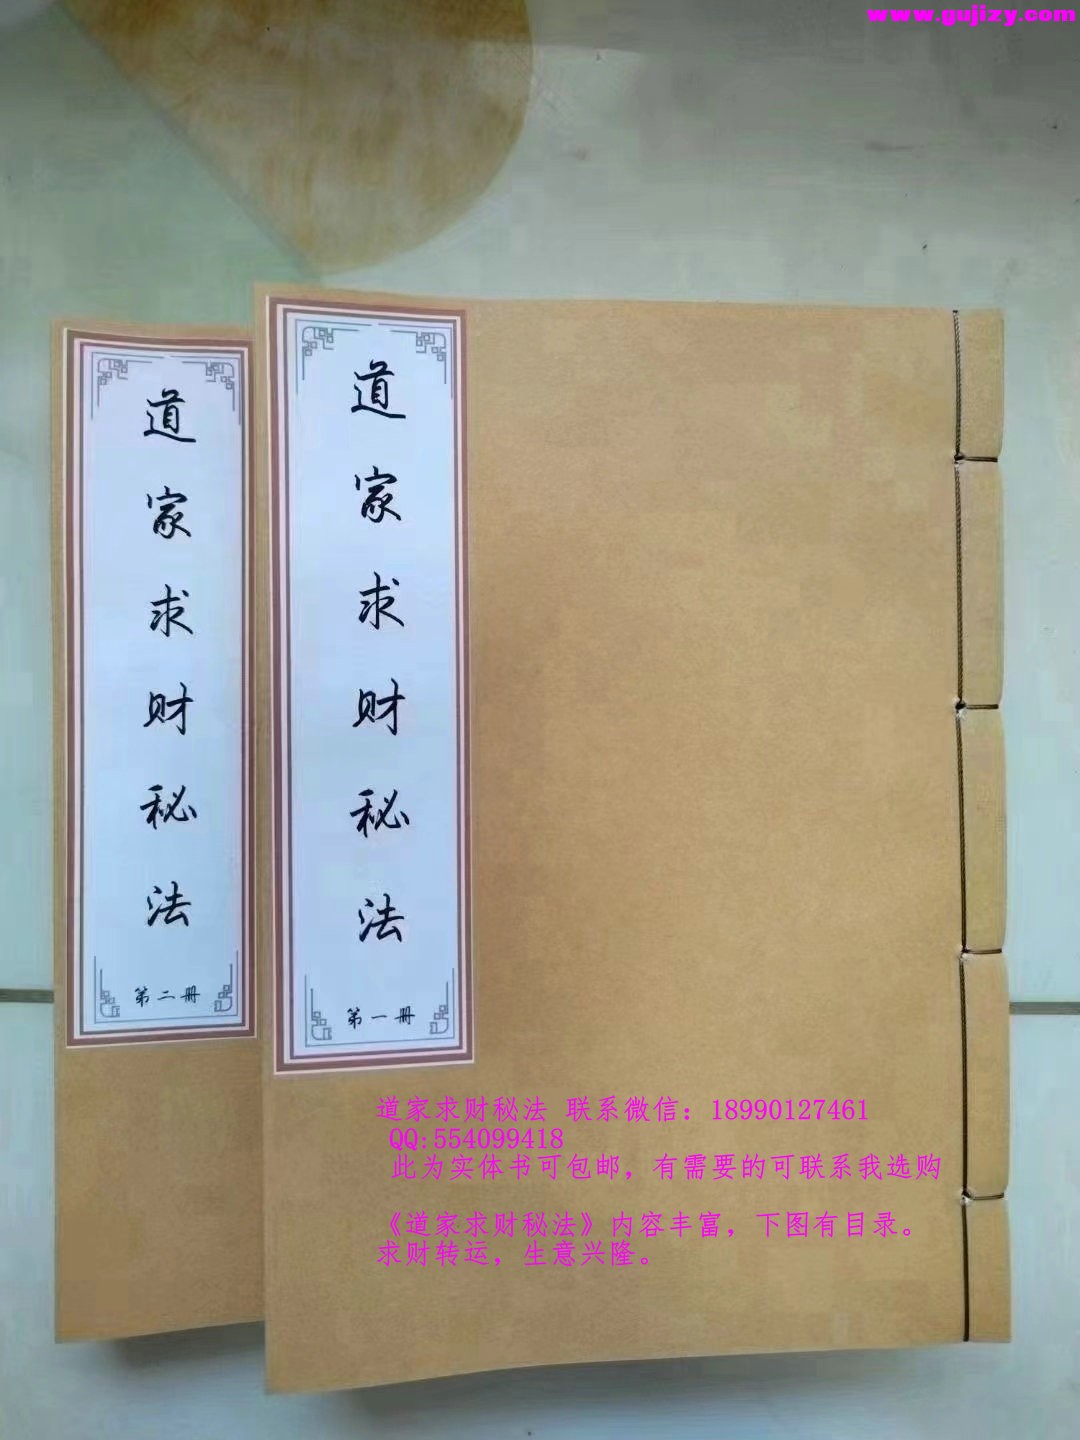 www.gujizy.com
道家求财秘法
第二册
道家求财秘法
第一册
道家求财秘法 联系微信：18990127461
QQ:554099418
此为实体书可包邮，有需要的可联系我选购
《道家求财秘法》内容丰富，下图有目录。
求财转运，生意兴隆。